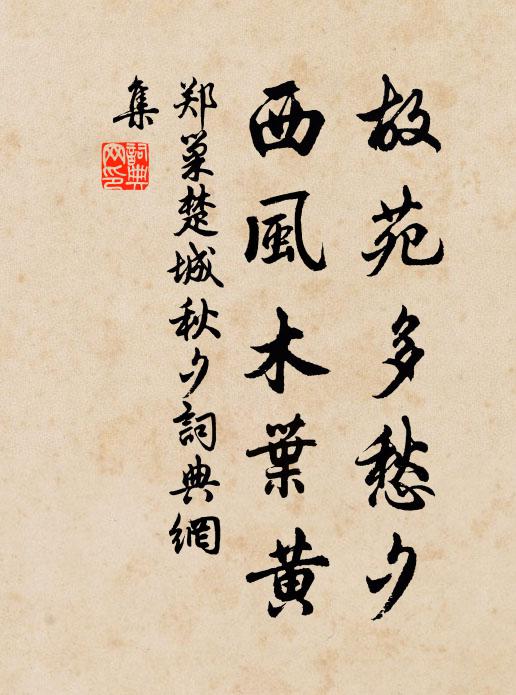 故苑多愁夕
西風木葉黄
郑巢楚城秋夕詞典網
集
詞典网印